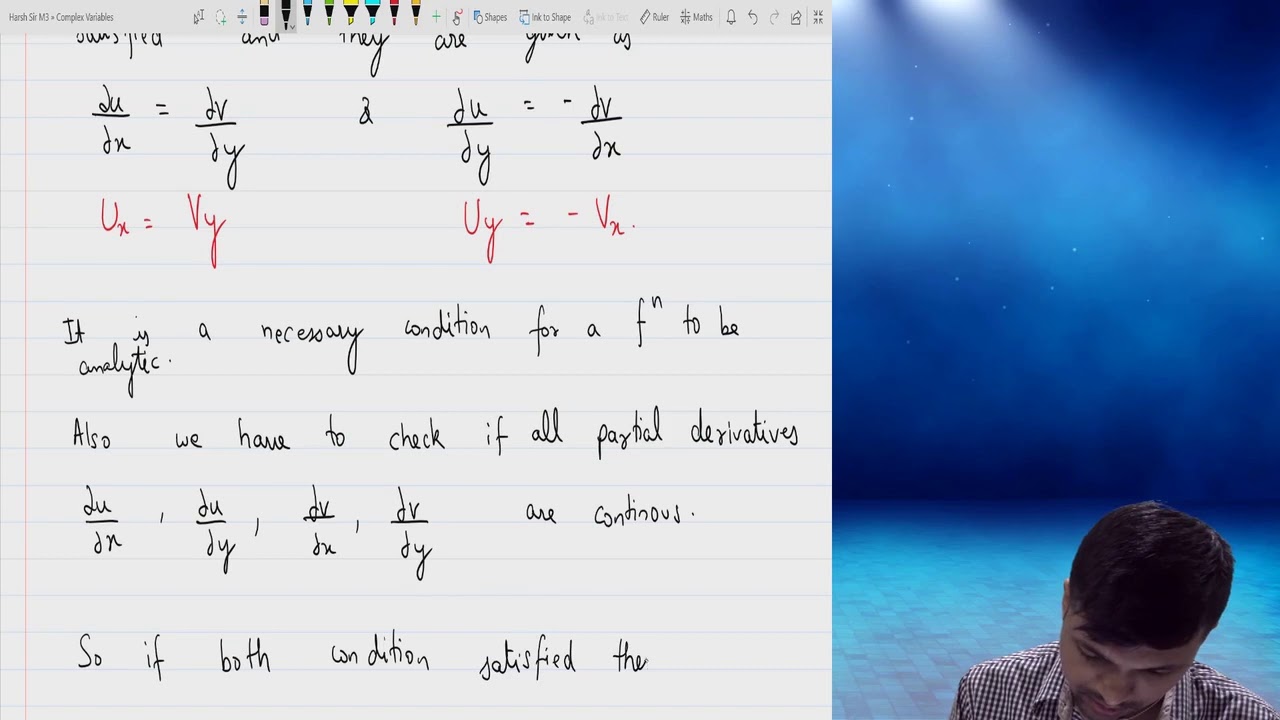 Harsh Sir M3 » Complex Variables
Shapes
Ink to Shape
Ink to Text
Ruler
Maths
satisfied and they are given as
∂u/∂x = ∂v/∂y & ∂u/∂y = - ∂v/∂x
Ux = Vy Uy = - Vx.
It is a necessary condition for a fⁿ to be
analytic.
Also we have to check if all partial derivatives
∂u/∂x , ∂u/∂y , ∂v/∂x , ∂v/∂y are continous.
So if both condition satisfied the